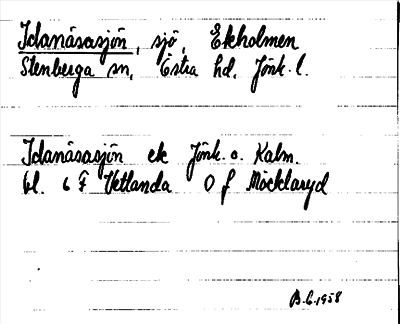 Idanäsasjön, sjö, Ekholmen
Stenberga sn, Östra hd, Jönk. l.
Idanäsasjön ek Jönk. o. Kalm.
bl. 6 F Vetlanda 0 f Möcklaryd
B.C. 1958